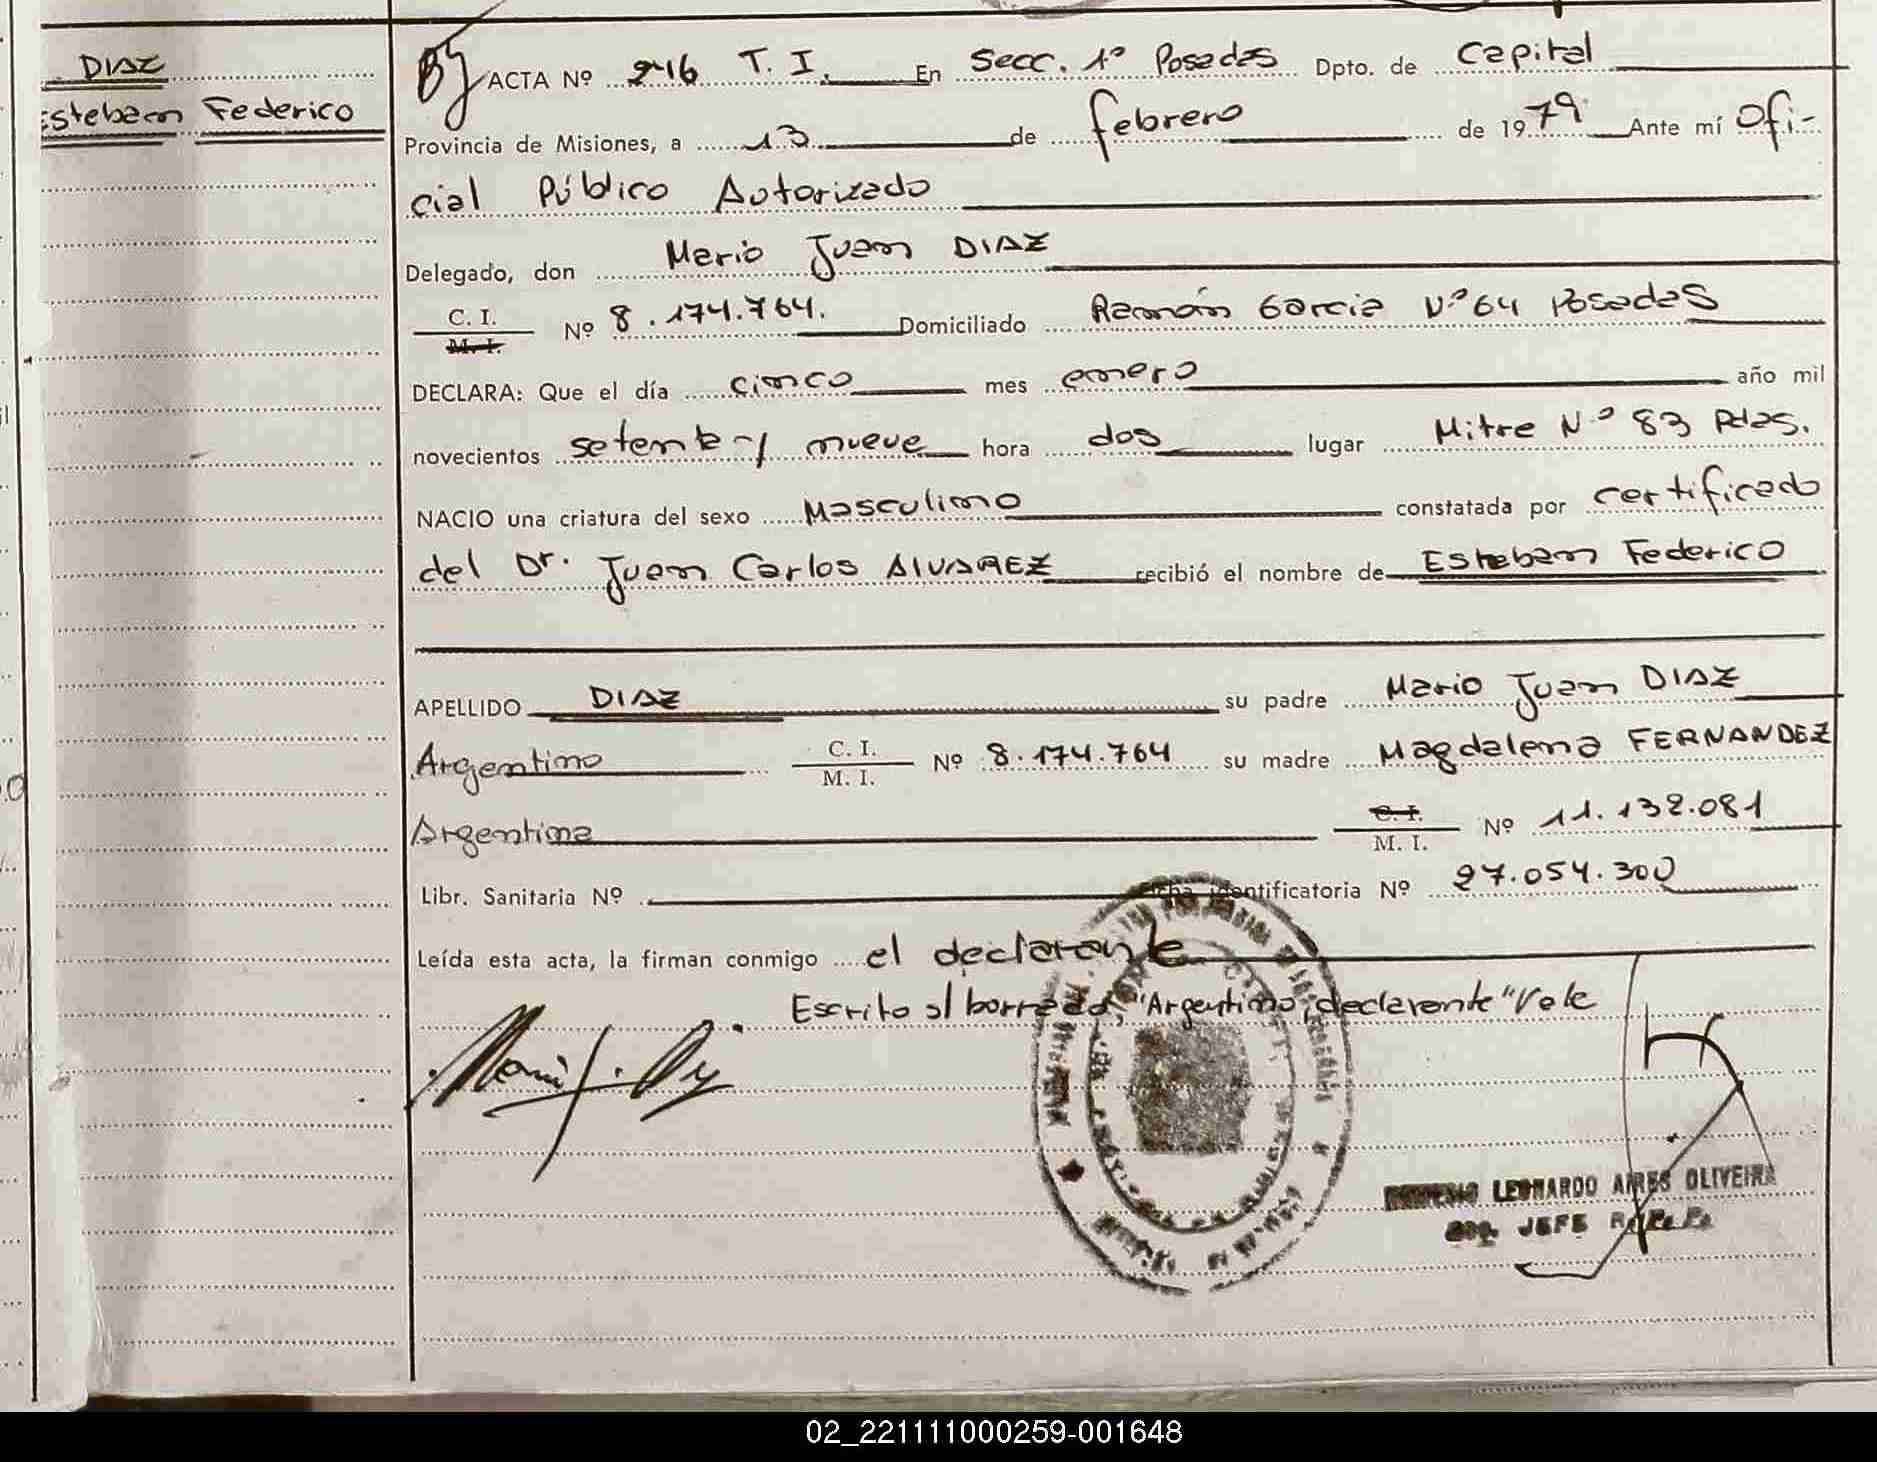 DIAZ
Esteban Federico
ACTA Nº 216 T. I. En Secc. 1º Posadas Dpto. de Capital
Provincia de Misiones, a 13 de febrero de 1979 Ante mí Ofi-
cial Público Autorizado
Delegado, don Mario Juan DIAZ
C. I.
M. I.
Nº 8.174.764. Domiciliado Ramón Garcia Nº 64 Posadas
DECLARA: Que el día cinco mes enero año mil
novecientos setenta y nueve hora dos lugar Mitre Nº 83 Pdas.
NACIO una criatura del sexo Masculino constatada por certificado
del Dr. Juan Carlos ALVAREZ recibió el nombre de Esteban Federico
APELLIDO DIAZ su padre Mario Juan DIAZ
Argentino C. I.
M. I.
Nº 8.174.764 su madre Magdalena FERNANDEZ
Argentina C. I.
M. I.
Nº 11.132.081
Libr. Sanitaria Nº Ficha identificatoria Nº 27.054.300
Leída esta acta, la firman conmigo el declarante
Escrito s/ borrado, "Argentino, declarante" Vale
LEONARDO AIRES OLIVEIRA
JEFE
02_221111000259-001648